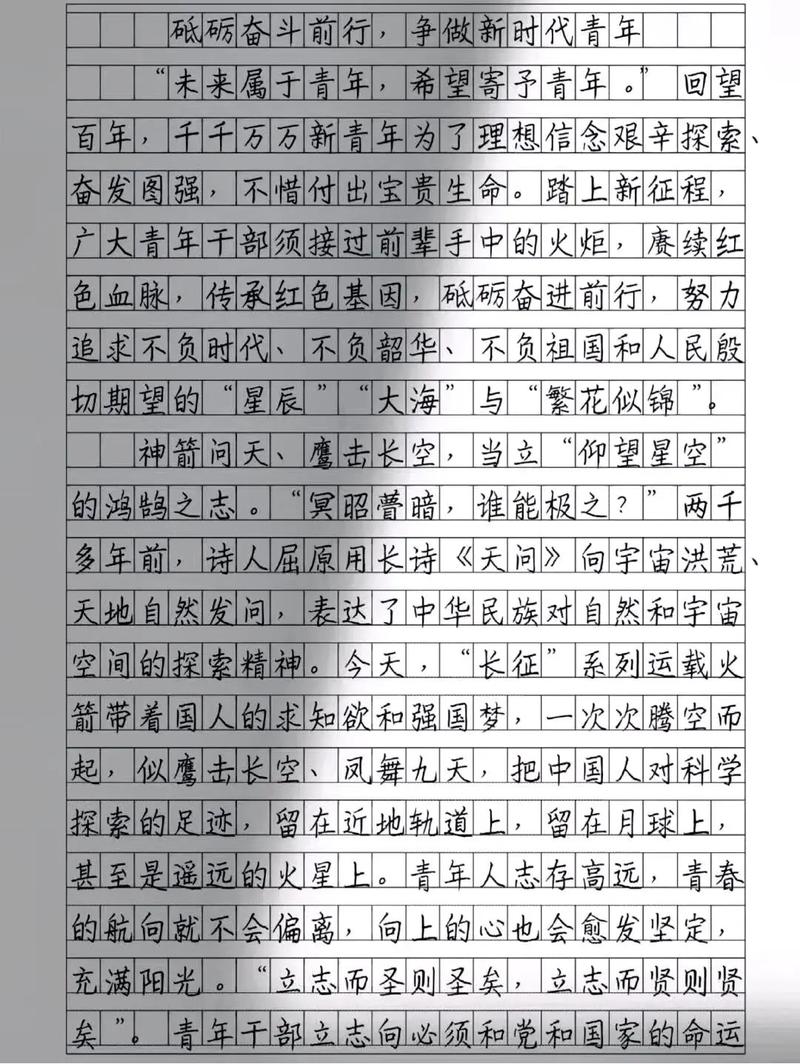 砥砺奋斗前行，争做新时代青年
“未来属于青年，希望寄予青年。”回望
百年，千千万万新青年为了理想信念艰辛探索、
奋发图强，不惜付出宝贵生命。踏上新征程，
广大青年干部须接过前辈手中的火炬，赓续红
色血脉，传承红色基因，砥砺奋进前行，努力
追求不负时代、不负韶华、不负祖国和人民殷
切期望的“星辰”“大海”与“繁花似锦”。
神箭问天、鹰击长空，当立“仰望星空”
的鸿鹄之志。“冥昭瞢暗，谁能极之？”两千
多年前，诗人屈原用长诗《天问》向宇宙洪荒、
天地自然发问，表达了中华民族对自然和宇宙
空间的探索精神。今天，“长征”系列运载火
箭带着国人的求知欲和强国梦，一次次腾空而
起，似鹰击长空、凤舞九天，把中国人对科学
探索的足迹，留在近地轨道上，留在月球上，
甚至是遥远的火星上。青年人志存高远，青春
的航向就不会偏离，向上的心也会愈发坚定，
充满阳光。“立志而圣则圣矣，立志而贤则贤
矣”。青年干部立志向必须和党和国家的命运